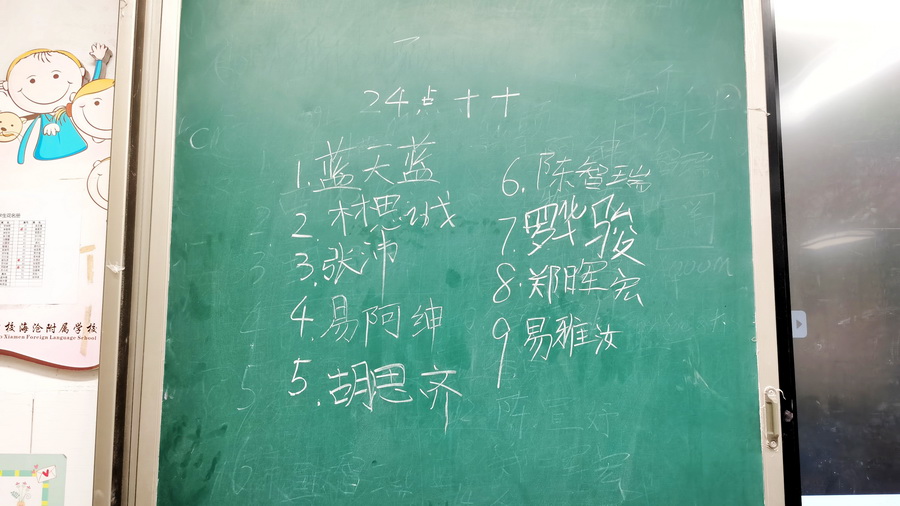 24点++
1.蓝天蓝
2.林思城
3.张沛
4.易阿绅
5.胡思齐
6.陈智瑞
7.罗华骏
8.郑晖宏
9易雅汝
校海沧附属学校
Xiamen Foreign Language School